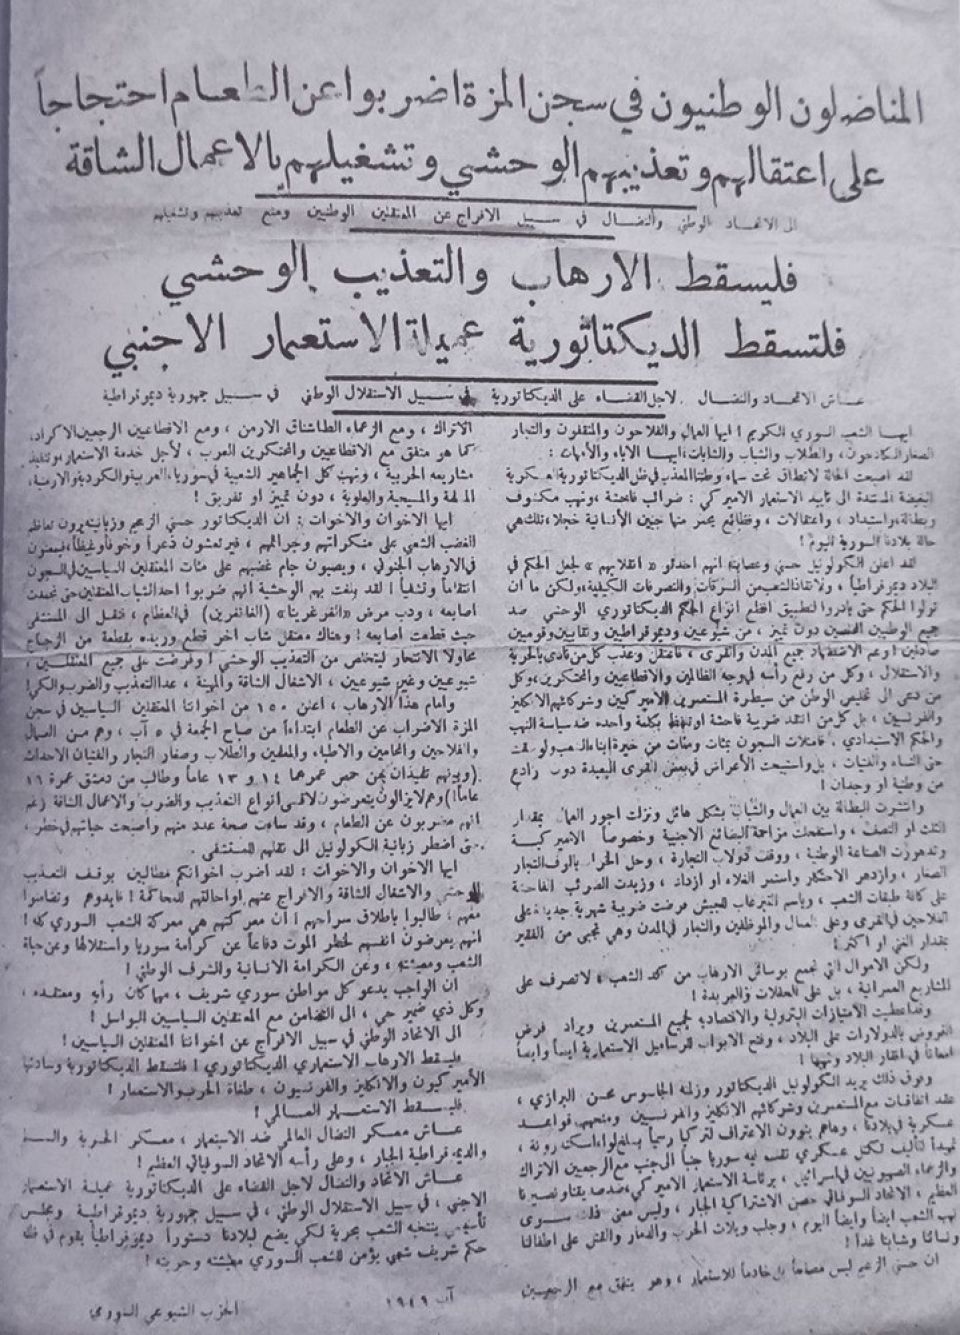 المناضلون الوطنيون في سجن المزة اضربوا عن الطعام احتجاجاً
على اعتقالهم وتعذيبهم الوحشي وتشغيلهم بالاعمال الشاقة
الى الاتحاد الوطني والنضال في سبيل الافراج عن المعتقلين الوطنيين ومنع تعذيبهم وتشغيلهم
فليسقط الارهاب والتعذيب الوحشي
فلتسقط الديكتاتورية عميلة الاستعمار الاجنبي
عاش الاتحاد والنضال لاجل القضاء على الديكتاتورية في سبيل الاستقلال الوطني في سبيل جمهورية ديموقراطية
ايها الشعب السوري الكريم ! ايها العمال والفلاحون والمثقفون والتجار
الصغار الكادحون، والطلاب والشباب والشابات، ايها الاباء والامهات :
لقد اصبحت الحالة لاتطاق تحت سماء وطننا المعذب في ظل الديكتاتورية العسكرية
البغيضة المستندة الى تأييد الاستعمار الاميركي : ضرائب فاحشة، ونهب مكشوف
وبطالة، واستبداد ، واعتقالات ، وفظائع يحمر منها جبين الأنسانية خجلا، تلك هي
حالة بلادنا السورية اليوم !
لقد اعلن الكولونيل حسني وعصابته انهم احدثوا « انقلابهم » لجعل الحكم في
البلاد ديموقراطياً ، ولانقاذ الشعب من السرقات والتصرفات الكيفية، ولكن ما ان
تولوا الحكم حتى بادروا لتطبيق افظع انواع الحكم الديكتاتوري الوحشي ضد
جميع الوطنيين المخلصين دون تمييز ، من شيوعيين وديموقراطيين ونقابيين وقوميين
صادقين ! وعم الاضطهاد جميع المدن والقرى ، فاعتقل وعذب كل من نادى بالحرية
والاستقلال ، وكل من رفع رأسه في وجه الظالمين والاقطاعيين والمحتكرين، وكل
من دعى الى تخليص الوطن من سيطرة المستعمرين الاميركيين وشركائهم الانكليز
والفرنسيين ، بل كل من انتقد ضريبة فاحشة او تلفظ بكلمة واحده ضد سياسة النهب
والحكم الاستبدادي . فامتلات السجون بمئات ومئات من خيرة ابناء الشعب ولوحقت
حتى النساء والفتيات ، بل واستبيحت الأعراض في بعض القرى البعيدة دون رادع
من وطنية او وجدان !
وانتشرت البطالة بين العمال والشباب بشكل هائل ونزلت اجور العمال بمقدار
الثلث او النصف ، واستفحلت مزاحمة البضائع الاجنبية وخصوصاً الاميركية
وتدهورت الصناعة الوطنية ، ووقف دولاب التجارة ، وحل الخراب بالوف التجار
الصغار ، وازدهر الاحتكار واستمر الغلاء او ازداد ، وزيدت الضرائب الفاحشة
على كافة طبقات الشعب ، وباسم التبرعات للجيش فرضت ضريبة شهرية جديدة على
الفلاحين في القرى وعلى العمال والموظفين والتجار في المدن وهي تجبى من الفقير
بمقدار الغني او اكثر !
ولكن الاموال التي تجمع بوسائل الارهاب من كد الشعب ، لاتصرف على
المشاريع العمرانية ، بل على الحفلات والعربدة !
الامتيازات البترولية والاقتصادية لجميع المستعمرين ويراد فرض
القروض بالدولارات على البلاد ، وفتح الابواب للرساميل الاستعمارية ايضاً وايضاً
امعاناً في افقار البلاد ونهبها !
وفوق ذلك يريد الكولونيل الديكتاتور وزلمه الجاسوس محسن البرازي ،
عقد اتفاقات مع المستعمرين وشركائهم الانكليز والفرنسيين ومنحهم قواعد
عسكرية في بلادنا ، وهاهم ينوون الاعتراف لتركيا رسمياً باسكندرونة ،
تمهيداً لتأليف تكتل عسكري تقف فيه سوريا جنباً الى جنب مع الرجعيين الاتراك
والزعماء الصهيونيين في اسرائيل ، برئاسة الاستعمار الاميركي، ضد
العظيم ، الاتحاد السوفياتي حصن الاشتراكية الجبار ، وليس معنى ذلك سوى
نهب الشعب ايضاً وايضاً اليوم ، وجلب ويلات الحرب والدمار والقتل على اطفالنا
ونسائنا وشبابنا غدا !
ان حسني الزعيم ليس مصلحاً بل خادماً للاستعمار ، وهو يتفق مع الرجعيين
الاتراك ، ومع الزعماء الطاشناق الارمن ، ومع الاقطاعيين الرجعيين الاكراد،
كما هو متفق مع الاقطاعيين والمحتكرين العرب ، لأجل خدمة الاستعمار، وتنفيذ
مشاريعه الحربية ، ونهب كل الجماهير الشعبية في سوريا، العربية والكردية والارمنية،
المسلمة والمسيحية والعلوية ، دون تمييز او تفريق !
ايها الاخوان والاخوات : ان الديكتاتور حسني الزعيم وزبانيته يرون تعاظم
الغضب الشعبي على منكراتهم وجرائمهم ، فيرتعشون ذعراً وخوفاً وغيظاً، فيمعنون
في الارهاب الجنوني ، ويصبون جام غضبهم على مئات المعتقلين السياسيين في السجون
انتقاماً وتشفياً ! لقد بلغت بهم الوحشية انهم ضربوا احد الشباب المعتقلين حتى تجمدت
اصابعه ، ودب مرض «الغرغرينا» (الغانغرين) في العظام ، فنقل الى المستشفى
حيث قطعت اصابعه ! وهناك معتقل شاب اخر قطع وريده بقطعة من الزجاج
محاولا الانتحار ليتخلص من التعذيب الوحشي ! وفرضت على جميع المعتقلين ،
شيوعيين وغير شيوعيين ، الاشغال الشاقة والمهينة ، عدا التعذيب والضرب والكي!
وامام هذا الارهاب ، اعلن ١٥٠ من اخواننا المعتقلين السياسيين في سجن
المزة الاضراب عن الطعام ابتداءاً من صباح الجمعة في ٥ آب ، وهم من العمال
والفلاحين والمحامين والاطباء والمعلمين والطلاب وصغار التجار والفتيان الاحداث
(وبينهم تلميذان من حمص عمرهما ١٤ و ١٣ عاماً وطالب من دمشق عمره ١٦
عاما!) وهم لايزالون يتعرضون لاقسى انواع التعذيب والضرب والاعمال الشاقة رغم
انهم مضربون عن الطعام ، وقد ساءت صحة عدد منهم واصبحت حياتهم في خطر ،
حتى اضطر زبانية الكولونيل الى نقلهم للمستشفى .
ايها الاخوان والاخوات : لقد اضرب اخوانكم مطالبين بوقف التعذيب
الوحشي والاشغال الشاقة والافراج عنهم او احالتهم للمحاكمة ! فايدوهم وتضامنوا
معهم ، طالبوا باطلاق سراحهم ! ان معركتهم هي معركة للشعب السوري كله !
انهم يعرضون انفسهم لخطر الموت دفاعاً عن كرامة سوريا واستقلالها وعن حياة
الشعب ومعيشته ، وعن الكرامة الانسانية والشرف الوطني !
ان الواجب يدعو كل مواطن سوري شريف ، مهما كان رأيه ومعتقده ،
وكل ذي ضمير حي ، الى التضامن مع المعتقلين السياسيين البواسل !
الى الاتحاد الوطني في سبيل الافراج عن اخواننا المعتقلين السياسيين !
فليسقط الارهاب الاستعماري الديكتاتوري ! فلتسقط الديكتاتورية وسادتها
الأميركيون والانكليز والفرنسيون ، طغاة الحرب والاستعمار !
فليسقط الاستعمار العالمي !
عاش معسكر النضال العالمي ضد الاستعمار ، معسكر الحرية والسلم
والديموقراطية الجبار ، وعلى رأسه الاتحاد السوفياتي العظيم !
عاش الاتحاد والنضال لاجل القضاء على الديكتاتورية عميلة الاستعمار
الاجنبي ، في سبيل الاستقلال الوطني ، في سبيل جمهورية ديموقراطية ومجلس
تأسيسي ينتخبه الشعب بحرية لكي يضع لبلادنا دستوراً ديموقراطياً يقوم في ظله
حكم شريف شعبي يؤمن للشعب السوري معيشته وحريته !
آب ١٩٤٩
الحزب الشيوعي السوري